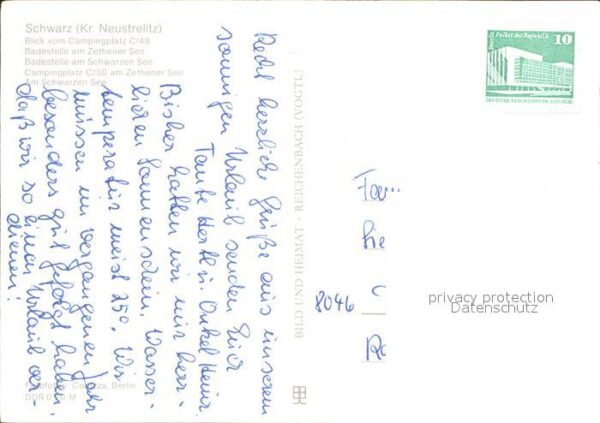 Schwarz (Kr. Neustrelitz)
Blick vom Campingplatz C/48
Badestelle am Zethener See
Badestelle am Schwarzen See
Campingplatz C/50 am Zethener See
Am Schwarzen See
Recht herzliche Grüße aus unserem
sonnigen Urlaub senden Euch
Tante Herta u. Onkel Heinz.
Bisher hatten wir nur herr-
lichen Sonnenschein. Wasser-
temperatur meist 25°. Wir
müssen im vergangenen Jahr
besonders gut gefolgt haben,
daß wir so einen Urlaub ver-
dienen!
BILD UND HEIMAT · REICHENBACH (VOGTL)
Berlin Palast der Republik
10
DEUTSCHE DEMOKRATISCHE REPUBLIK
Fam...
8046
privacy protection
Datenschutz
Berlin
DDR M